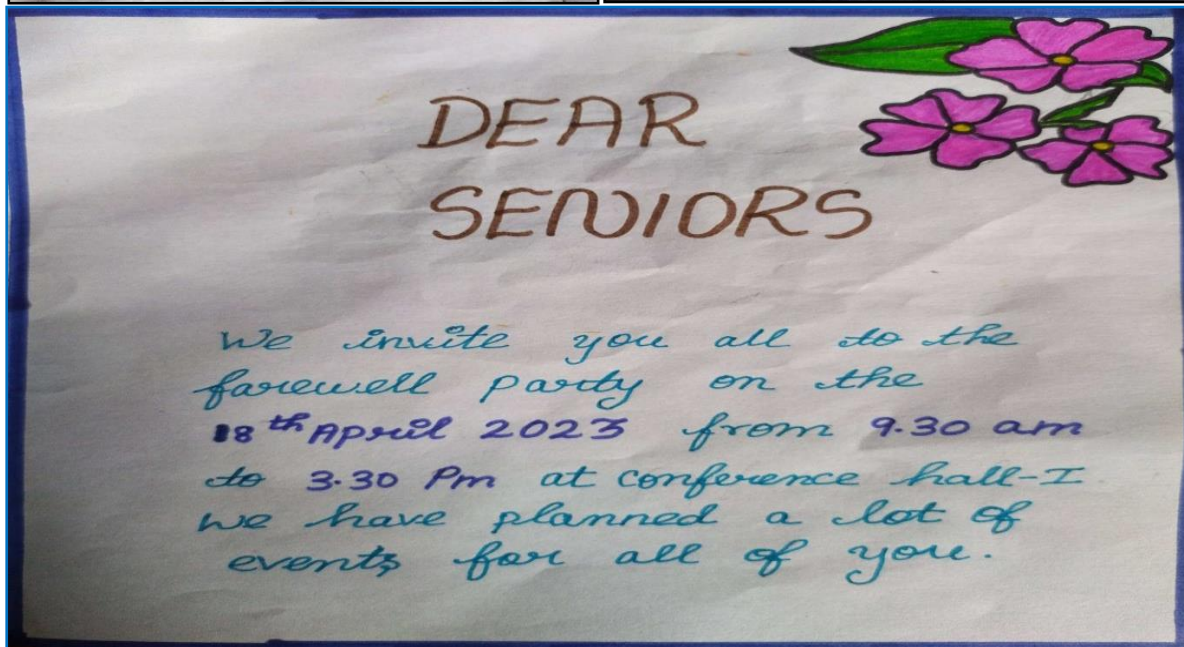 DEAR
SENIORS
We invite you all to the
farewell party on the
18th April 2023 from 9.30 am
to 3.30 Pm at conference hall-I
we have planned a lot of
events for all of you.